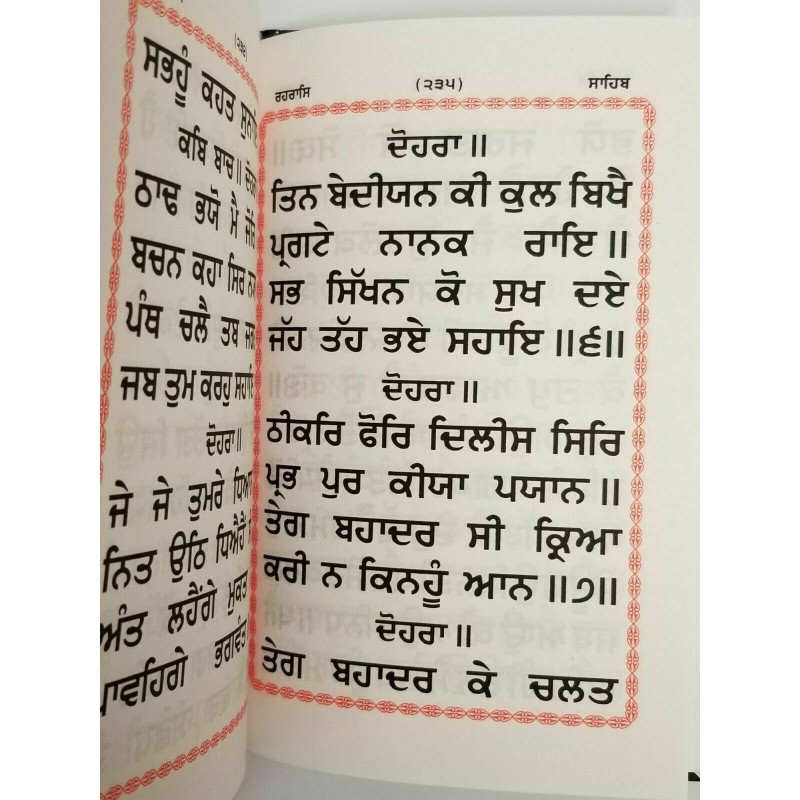 (੨੩੪)
ਸਭਹੂੰ ਕਹਤ
ਕਬਿ ਬਾਚ॥
ਠਾਢ ਭਯੋ ਮੈ ਜੋਰਿ
ਬਚਨ ਕਹਾ ਸਿਰ
ਪੰਥ ਚਲੈ ਤਬ
ਜਬ ਤੁਮ ਕਰਹੁ ਸਹਾਇ
ਦੋਹਰਾ॥
ਜੇ ਜੇ ਤੁਮਰੇ
ਨਿਤ ਉਠਿ ਧਿਐਹੈਂ
ਅੰਤ ਲਹੈਂਗੇ ਮੁਕਤ
ਪਾਵਹਿਗੇ ਭਗਵੰਤ
ਰਹਰਾਸਿ (੨੩੫) ਸਾਹਿਬ
ਦੋਹਰਾ॥
ਤਿਨ ਬੇਦੀਯਨ ਕੀ ਕੁਲ ਬਿਖੈ
ਪ੍ਰਗਟੇ ਨਾਨਕ ਰਾਇ॥
ਸਭ ਸਿੱਖਨ ਕੋ ਸੁਖ ਦਏ
ਜੱਹ ਤੱਹ ਭਏ ਸਹਾਇ॥੬॥
ਦੋਹਰਾ॥
ਠੀਕਰਿ ਫੋਰਿ ਦਿਲੀਸ ਸਿਰਿ
ਪ੍ਰਭ ਪੁਰ ਕੀਯਾ ਪਯਾਨ॥
ਤੇਗ ਬਹਾਦਰ ਸੀ ਕ੍ਰਿਆ
ਕਰੀ ਨ ਕਿਨਹੂੰ ਆਨ॥੭॥
ਦੋਹਰਾ॥
ਤੇਗ ਬਹਾਦਰ ਕੇ ਚਲਤ